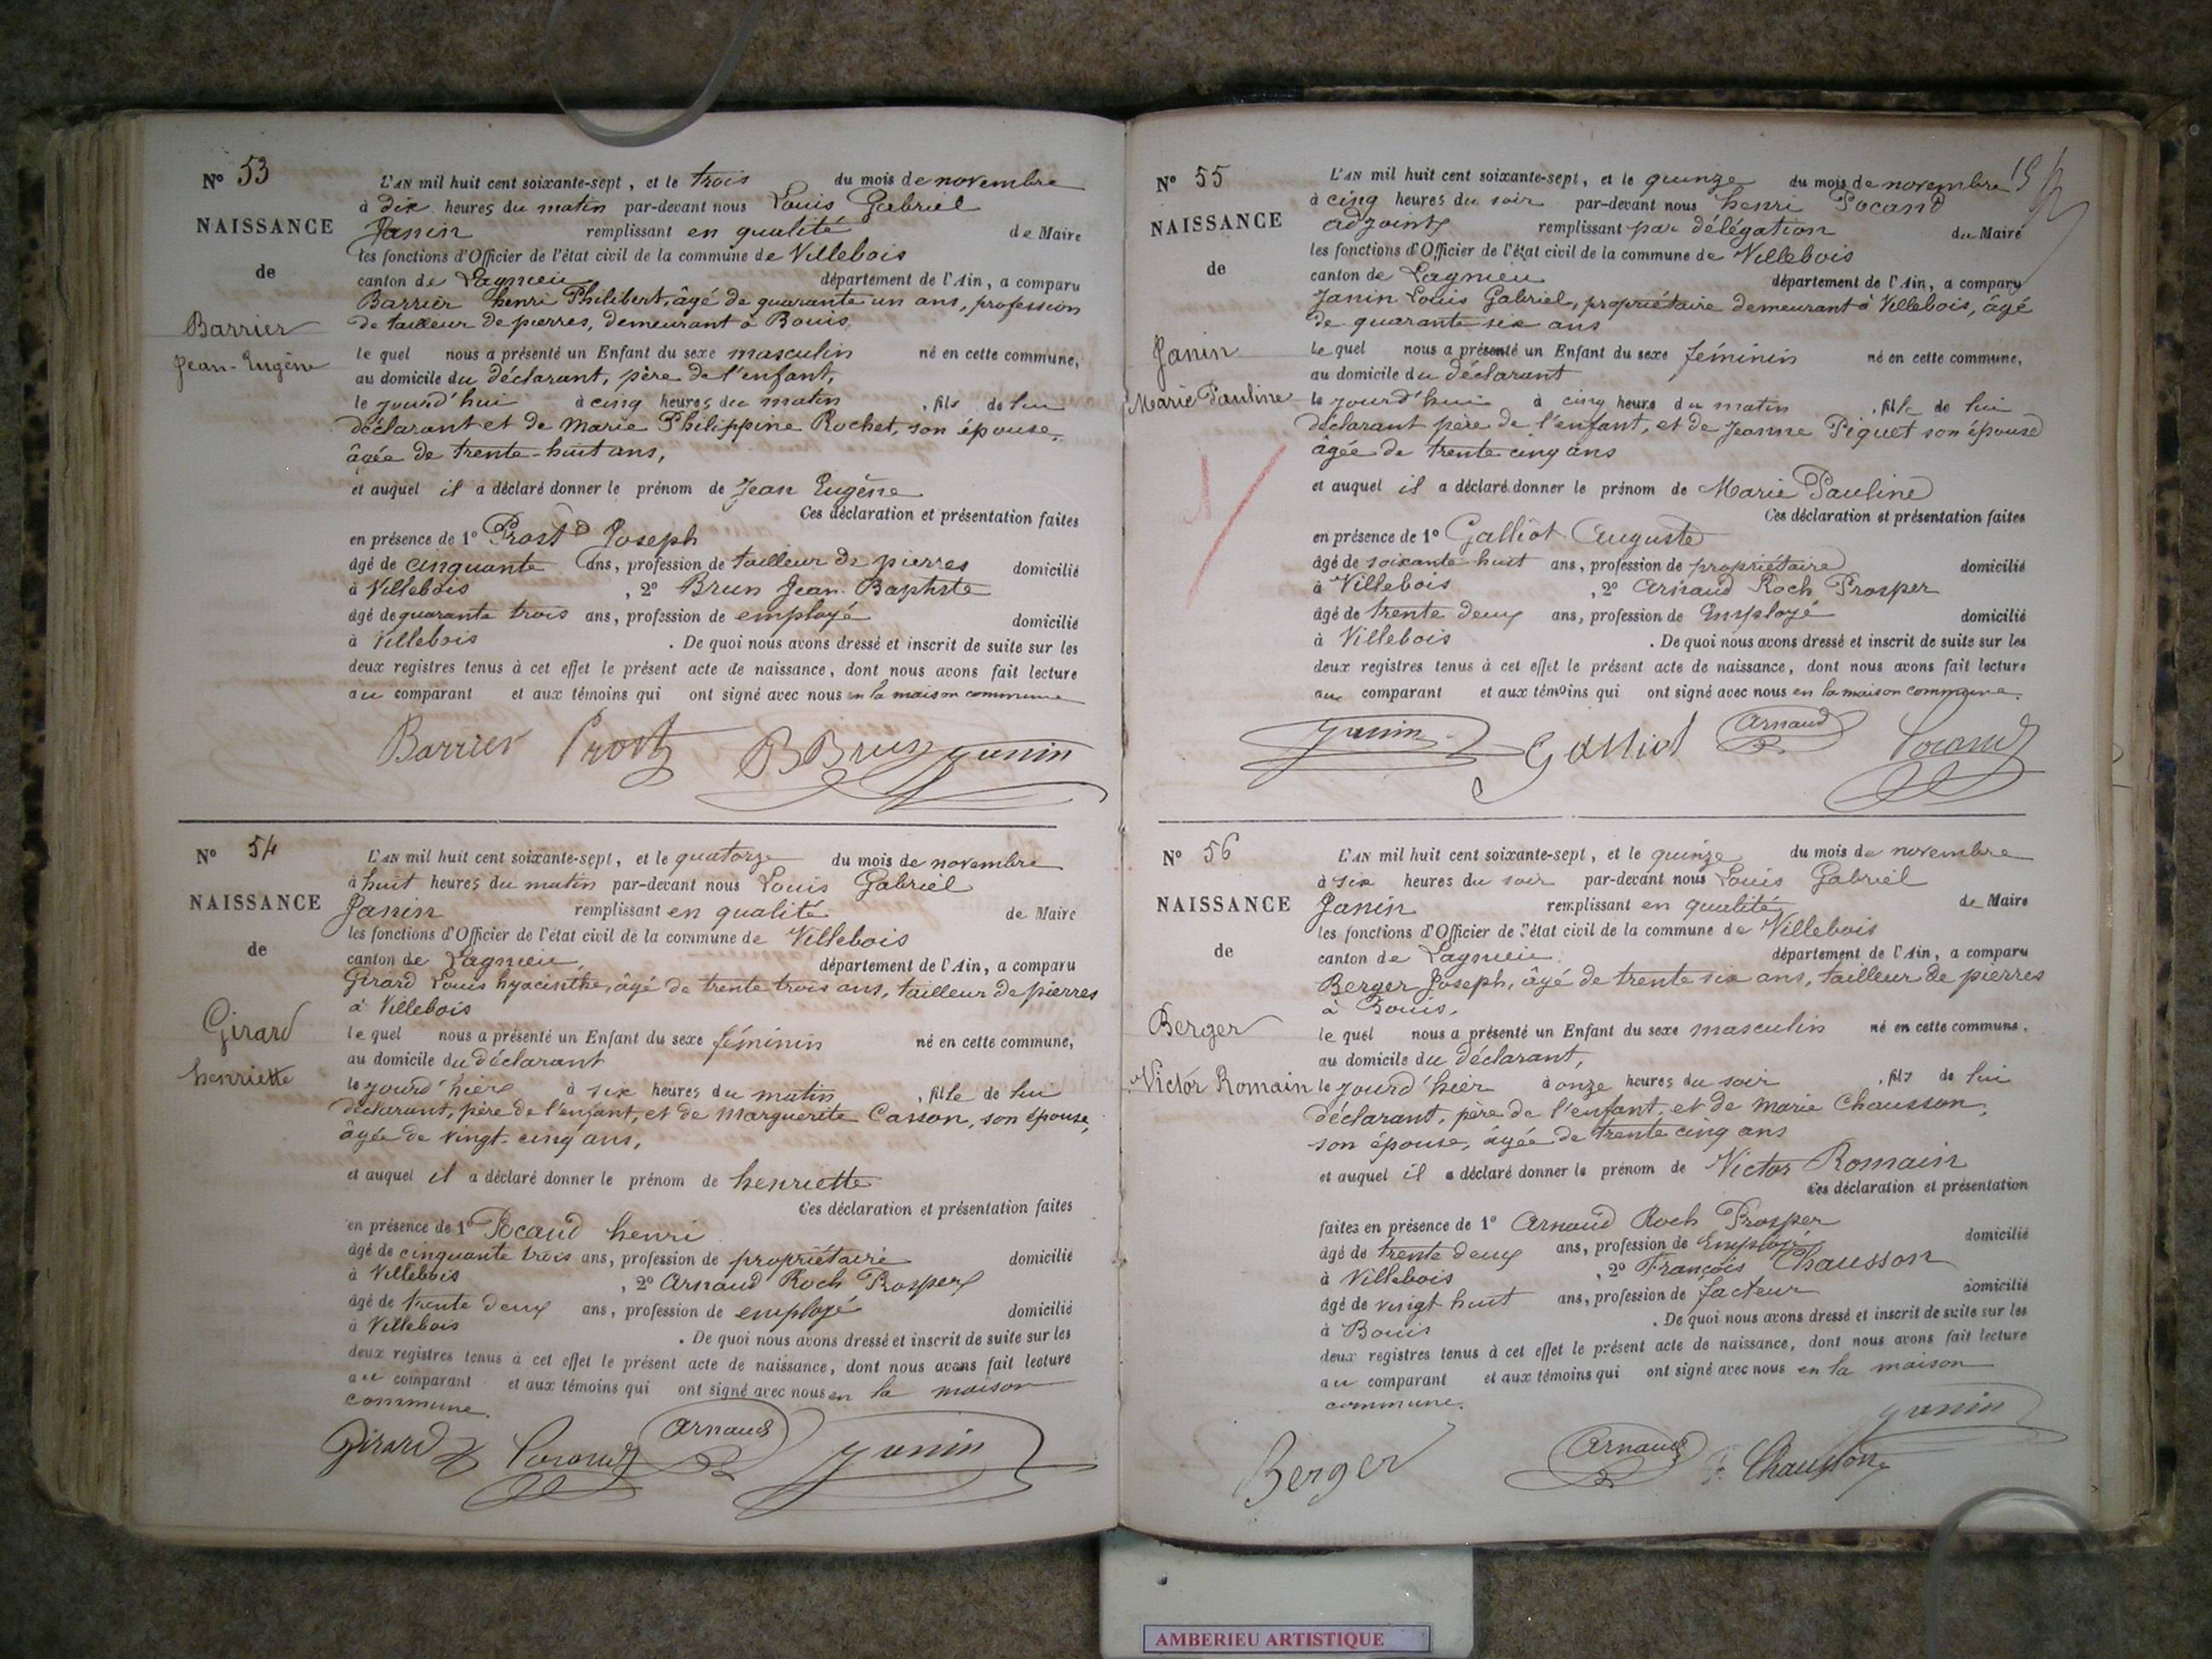 N° 53
NAISSANCE
de
Barrier
Jean-Eugène
L'AN mil huit cent soixante-sept, et le trois du mois de novembre
à dix heures du matin par-devant nous Louis Gabriel
Janin remplissant en qualité de Maire
les fonctions d'Officier de l'état civil de la commune de Villebois
canton de Lagnieu département de l'Ain, a comparu
Barrier henri Philibert, âgé de quarante un ans, profession
de tailleur de pierres, demeurant à Bouis,
le quel nous a présenté un Enfant du sexe masculin né en cette commune,
au domicile du déclarant, père de l'enfant,
le jourd'hui à cinq heures du matin, fils de lui
déclarant et de Marie Philippine Rochet, son épouse,
âgée de trente-huit ans,
et auquel il a déclaré donner le prénom de Jean Eugène
Ces déclaration et présentation faites
en présence de 1° Prost Joseph
âgé de cinquante ans, profession de tailleur de pierres domicilié
à Villebois, 2° Brun Jean-Baptiste
âgé de quarante trois ans, profession de employé domicilié
à Villebois. De quoi nous avons dressé et inscrit de suite sur les
deux registres tenus à cet effet le présent acte de naissance, dont nous avons fait lecture
au comparant et aux témoins qui ont signé avec nous en la maison commune
Barrier Prost B Brun Janin
N° 54
NAISSANCE
de
Girard
henriette
L'AN mil huit cent soixante-sept, et le quatorze du mois de novembre
à huit heures du matin par-devant nous Louis Gabriel
Janin remplissant en qualité de Maire
les fonctions d'Officier de l'état civil de la commune de Villebois
canton de Lagnieu, département de l'Ain, a comparu
Girard Louis hyacinthe, âgé de trente trois ans, tailleur de pierres
à Villebois
le quel nous a présenté un Enfant du sexe féminin né en cette commune,
au domicile du déclarant
le jourd'hier à six heures du matin, fille de lui
déclarant, père de l'enfant, et de Marguerite Casson, son épouse,
âgée de vingt-cinq ans,
et auquel il a déclaré donner le prénom de henriette
Ces déclaration et présentation faites
en présence de 1° Pocand henri
âgé de cinquante trois ans, profession de propriétaire domicilié
à Villebois, 2° Arnaud Roch Prosper
âgé de trente deux ans, profession de employé domicilié
à Villebois. De quoi nous avons dressé et inscrit de suite sur les
deux registres tenus à cet effet le présent acte de naissance, dont nous avons fait lecture
au comparant et aux témoins qui ont signé avec nous en la maison
commune.
Girard Pocand Arnaud Janin
N° 55
NAISSANCE
de
Janin
Marie Pauline
L'AN mil huit cent soixante-sept, et le quinze du mois de novembre
à cinq heures du soir par-devant nous henri Pocand
adjoint remplissant par délégation du Maire
les fonctions d'Officier de l'état civil de la commune de Villebois
canton de Lagnieu département de l'Ain, a comparu
Janin Louis Gabriel, propriétaire demeurant à Villebois, âgé
de quarante six ans
le quel nous a présenté un Enfant du sexe féminin né en cette commune,
au domicile du déclarant
le jourd'hui à cinq heures du matin, fille de lui
déclarant père de l'enfant, et de Jeanne Piquet son épouse
âgée de trente cinq ans
et auquel il a déclaré donner le prénom de Marie Pauline
Ces déclaration et présentation faites
en présence de 1° Galliot Auguste
âgé de soixante huit ans, profession de propriétaire domicilié
à Villebois, 2° Arnaud Roch Prosper
âgé de trente deux ans, profession de Employé domicilié
à Villebois. De quoi nous avons dressé et inscrit de suite sur les
deux registres tenus à cet effet le présent acte de naissance, dont nous avons fait lecture
au comparant et aux témoins qui ont signé avec nous en la maison commune.
Janin Galliot Arnaud Pocand
N° 56
NAISSANCE
de
Berger
Victor Romain
L'AN mil huit cent soixante-sept, et le quinze du mois de novembre
à six heures du soir par-devant nous Louis Gabriel
Janin remplissant en qualité de Maire
les fonctions d'Officier de l'état civil de la commune de Villebois
canton de Lagnieu. département de l'Ain, a comparu
Berger Joseph, âgé de trente six ans, tailleur de pierres
à Bouis.
le quel nous a présenté un Enfant du sexe masculin né en cette commune.
au domicile du déclarant,
le jourd'hier à onze heures du soir, fils de lui
déclarant, père de l'enfant, et de Marie Chausson,
son épouse, âgée de trente cinq ans
et auquel il a déclaré donner le prénom de Victor Romain
Ces déclaration et présentation
faites en présence de 1° Arnaud Roch Prosper
âgé de trente deux ans, profession de Employé domicilié
à Villebois, 2° François Chausson
âgé de vingt huit ans, profession de facteur domicilié
à Bouis. De quoi nous avons dressé et inscrit de suite sur les
deux registres tenus à cet effet le présent acte de naissance, dont nous avons fait lecture
au comparant et aux témoins qui ont signé avec nous en la maison
commune.
Janin
Berger Arnaud F. Chausson
AMBERIEU ARTISTIQUE